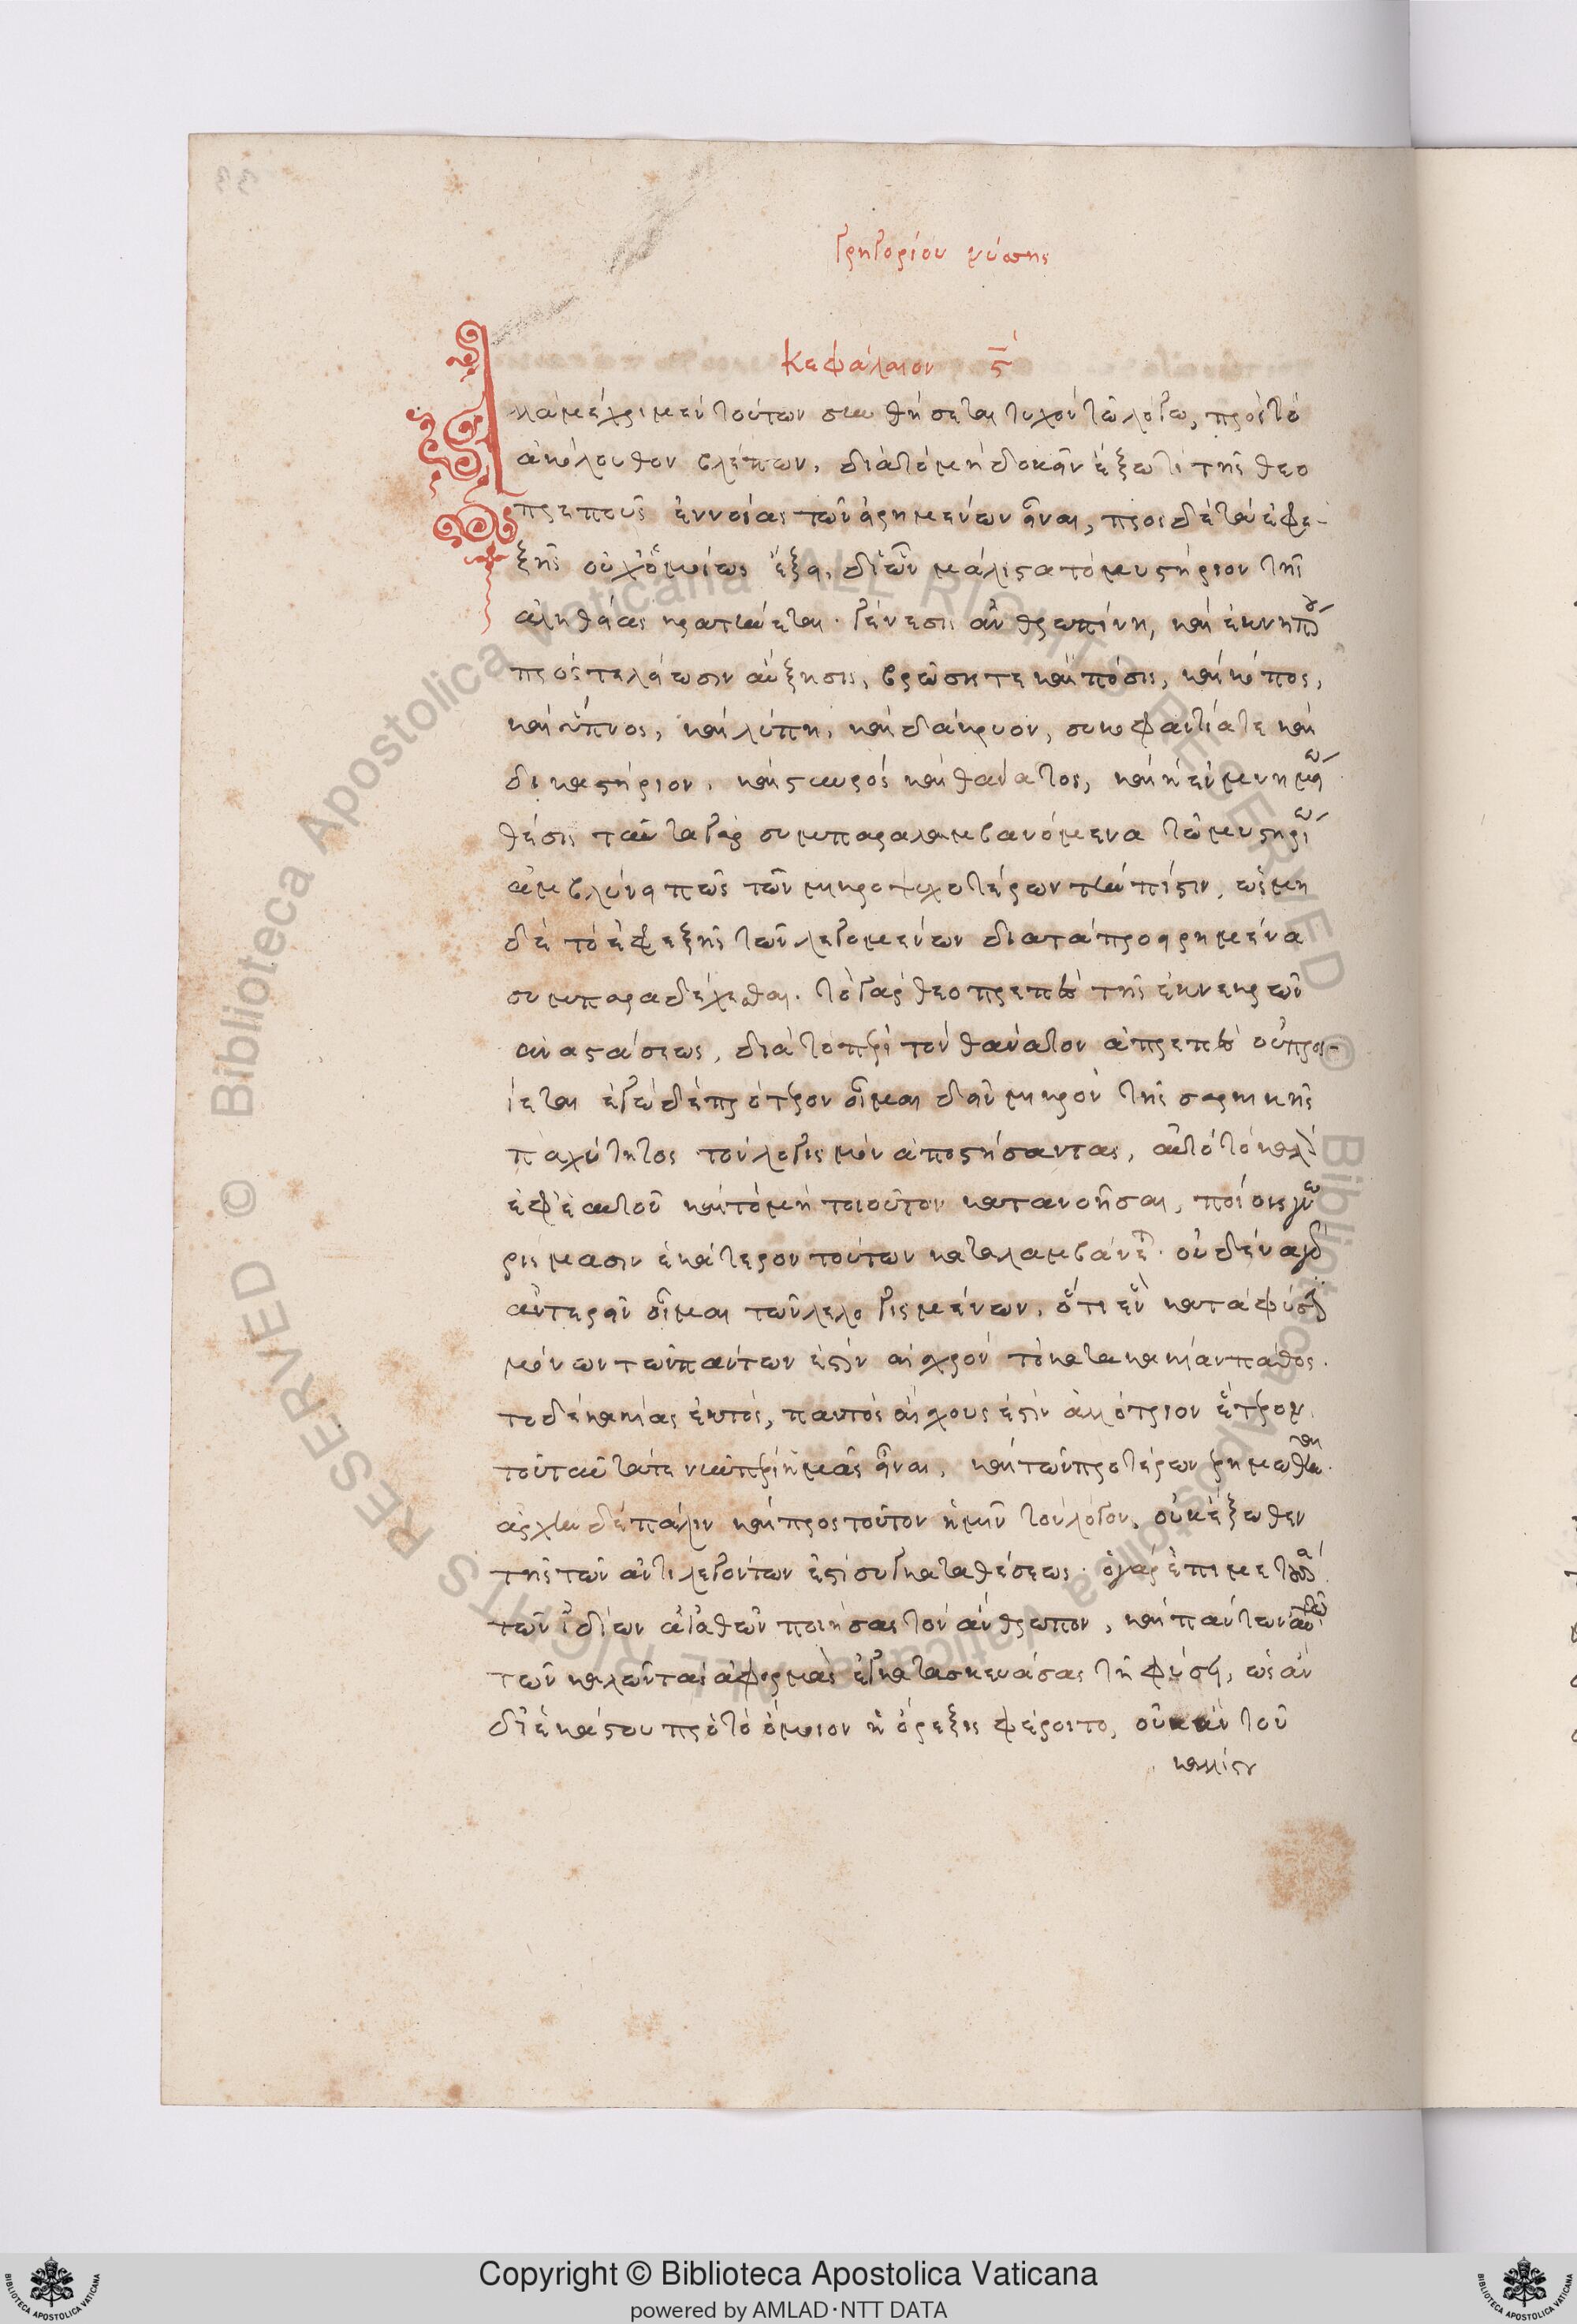 Γρηγορίου νύσσης
Κεφάλαιον ϛ
Ἀλλὰ μέχρι μὲν τούτων συνθήσεται τυχὸν τῷ λόγῳ, πρὸς τὸ
ἀκόλουθον βλέπων, διὰ τὸ μὴ δοκεῖν ἔξω τι τῆς θεο
πρεποῦς ἐννοίας τῶν εἰρημένων εἶναι, πρὸς δὲ τὰ ἐφε-
ξῆς οὐχ ὁμοίως ἕξει, δι' ὧν μάλιστα τὸ μυστήριον τῆς
ἀληθείας κρατύνεται. γένεσις ἀνθρωπίνη, καὶ ἐκ νηπίου
πρὸς τελείωσιν αὔξησις, βρῶσίς τε καὶ πόσις, καὶ κόπος,
καὶ ὕπνος, καὶ λύπη, καὶ δάκρυον, συκοφαντία τε καὶ
δικαστήριον, καὶ σταυρὸς καὶ θάνατος, καὶ ἡ ἐν μνημείῳ
θέσις ταῦτα γὰρ συμπαραλαμβανόμενα τῷ μυστηρίῳ
ἀμβλύνει πως τῶν μικροψυχοτέρων τὴν πίστιν, ὡς μη
δὲ τὸ ἐφεξῆς τῶν λεγομένων διὰ τὰ προειρημένα
συμπαραδέχεσθαι. τὸ γὰρ θεοπρεπὲς τῆς ἐκ νεκρῶν
ἀναστάσεως, διὰ τὸ περὶ τὸν θάνατον ἀπρεπὲς οὐ προσ-
ίεται ἐγὼ δὲ πρότερον οἶμαι δεῖν μικρὸν τῆς σαρκικῆς
παχύτητος τὸν λογισμὸν ἀποστήσαντας, αὐτὸ τὸ καλὸν
ἐφ' ἑαυτοῦ καὶ τὸ μὴ τοιοῦτον κατανοῆσαι, ποίοις γνω
ρίσμασιν ἑκάτερον τούτων καταλαμβάνεται. οὐδένα γὰρ
ἀντερεῖν οἶμαι τῶν λελογισμένων, ὅτι ἓν κατὰ φύσιν
μόνων τῶν πάντων ἐστὶν αἰσχρὸν τὸ κατὰ κακίαν πάθος.
τὸ δὲ κακίας ἐκτὸς, παντὸς αἴσχους ἐστὶν ἀλλότριον ἕτερον
ἀρχὴν δὲ πάλιν καὶ πρὸς τοῦτον ἡμῖν τὸν λόγον, οὐκ ἔξωθεν
τῆς τῶν ἀντιλεγόντων ἐστὶ συγκαταθέσεως. ὁ γὰρ ἐπὶ μετουσίᾳ
τῶν ἰδίων ἀγαθῶν ποιήσας τὸν ἄνθρωπον, καὶ πάντων αὐτῷ
τῶν καλῶν τὰς ἀφορμὰς ἐγκατασκευάσας τῇ φύσει, ὡς ἂν
δι' ἑκάστου πρὸς τὸ ὅμοιον ἡ ὄρεξις φέροιτο, οὐκ ἂν τοῦ
καλλίστου